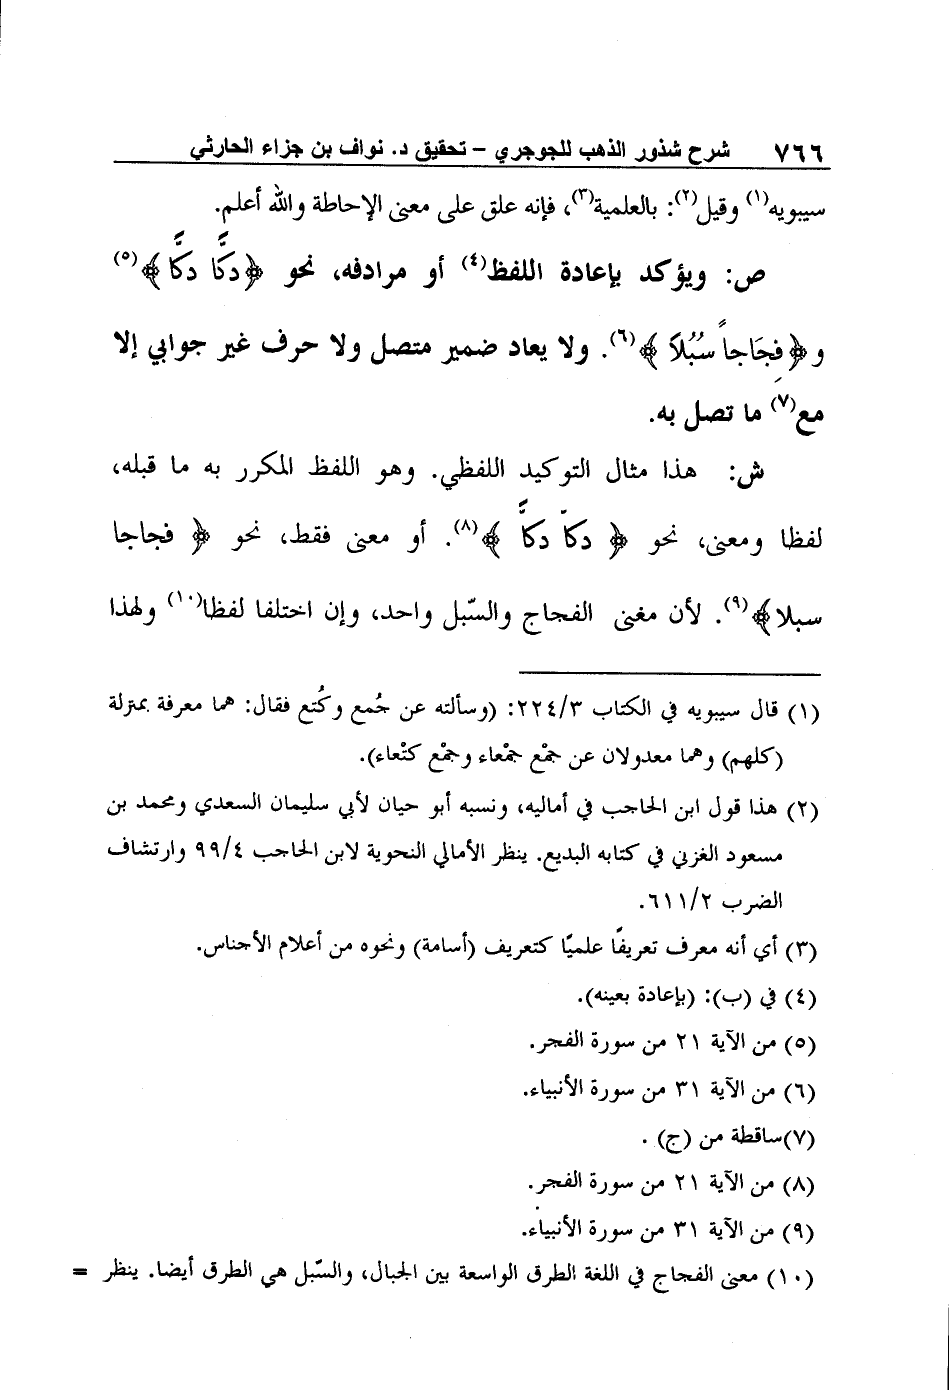 ٧٦٦ شرح شذور الذهب للجوجري – تحقيق د. نواف بن جزاء الحارثي
سيبويه(١) وقيل(٢): بالعلمية(٣)، فإنه علق على معنى الإحاطة والله أعلم.
ص: ويؤكد بإعادة اللفظ(٤) أو مرادفه، نحو ﴿دكًّا دكًّا﴾(٥)
و﴿فِجَاجاً سُبُلاً﴾(٦). ولا يعاد ضمير متصل ولا حرف غير جوابي إلا
مع(٧) ما تصل به.
ش: هذا مثال التوكيد اللفظي. وهو اللفظ المكرر به ما قبله،
لفظا ومعنى، نحو ﴿ دكاّ دكاًّ ﴾(٨). أو معنى فقط، نحو ﴿ فجاجا
سبلا﴾(٩). لأن مغنى الفجاج والسّبل واحد، وإن اختلفا لفظا(١٠) ولهذا
(١) قال سيبويه في الكتاب ٢٢٤/٣: (وسألته عن جُمع وكُتع فقال: هما معرفة بمنزلة
(كلهم) وهما معدولان عن جمْع جمْعاء وجمْع كتْعاء).
(٢) هذا قول ابن الحاجب في أماليه، ونسبه أبو حيان لأبي سليمان السعدي ومحمد بن
مسعود الغزني في كتابه البديع. ينظر الأمالي النحوية لابن الحاجب ٩٩/٤ وارتشاف
الضرب ٦١١/٢.
(٣) أي أنه معرف تعريفًا علميًا كتعريف (أسامة) ونحوه من أعلام الأجناس.
(٤) في (ب): (بإعادة بعينه).
(٥) من الآية ٢١ من سورة الفجر.
(٦) من الآية ٣١ من سورة الأنبياء.
(٧)ساقطة من (ج) .
(٨) من الآية ٢١ من سورة الفجر.
(٩) من الآية ٣١ من سورة الأنبياء.
(١٠) معنى الفجاج في اللغة الطرق الواسعة بين الجبال، والسّبل هي الطرق أيضا. ينظر =